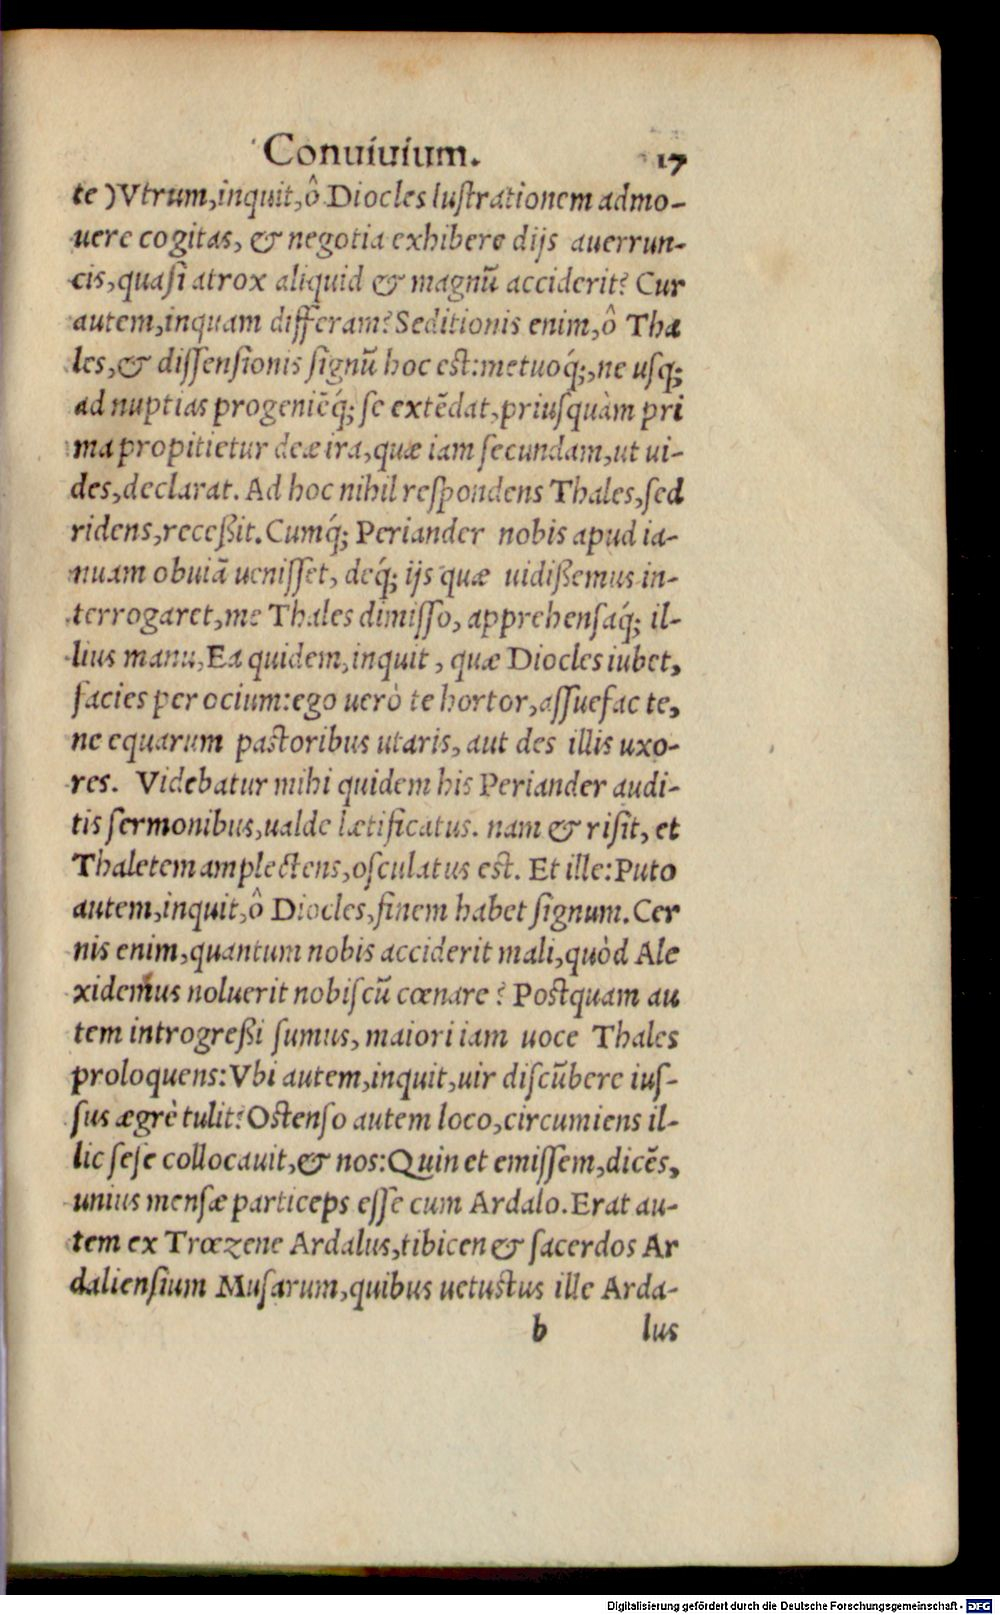 Conuiuium. 17
te) Vtrum, inquit, ô Diocles lustrationem admo-
uere cogitas, & negotia exhibere dijs auerrun-
cis, quasi atrox aliquid & magnũ acciderit? Cur
autem, inquam differam? Seditionis enim, ô Tha
les, & dissensionis signũ hoc est: metuoq́;, ne usq;
ad nuptias progeniẽq́; se extẽdat, priusquàm pri
ma propitietur deæ ira, quæ iam secundam, ut ui-
des, declarat. Ad hoc nihil respondens Thales, sed
ridens, receßit. Cumq́; Periander nobis apud ia-
nuam obuiã uenisset, deq́; ijs quæ uidißemus in-
terrogaret, me Thales dimisso, apprehensaq́; il-
lius manu, Ea quidem, inquit, quæ Diocles iubet,
facies per ocium: ego uerò te hortor, assuefac te,
ne equarum pastoribus utaris, aut des illis uxo-
res. Videbatur mihi quidem his Periander audi-
tis sermonibus, ualde lætificatus. nam & risit, et
Thaletem amplectens, osculatus est. Et ille: Puto
autem, inquit, ô Diocles, finem habet signum. Cer
nis enim, quantum nobis acciderit mali, quòd Ale
xidemus noluerit nobiscũ cœnare? Postquam au
tem introgreßi sumus, maiori iam uoce Thales
proloquens: Vbi autem, inquit, uir discũbere ius-
sus ægrè tulit? Ostenso autem loco, circumiens il-
lic sese collocauit, & nos: Quin et emissem, dicẽs,
unius mensæ particeps esse cum Ardalo. Erat au-
tem ex Trœzene Ardalus, tibicen & sacerdos Ar
daliensium Musarum, quibus uetustus ille Arda-
b lus
Digitalisierung gefördert durch die Deutsche Forschungsgemeinschaft - DFG